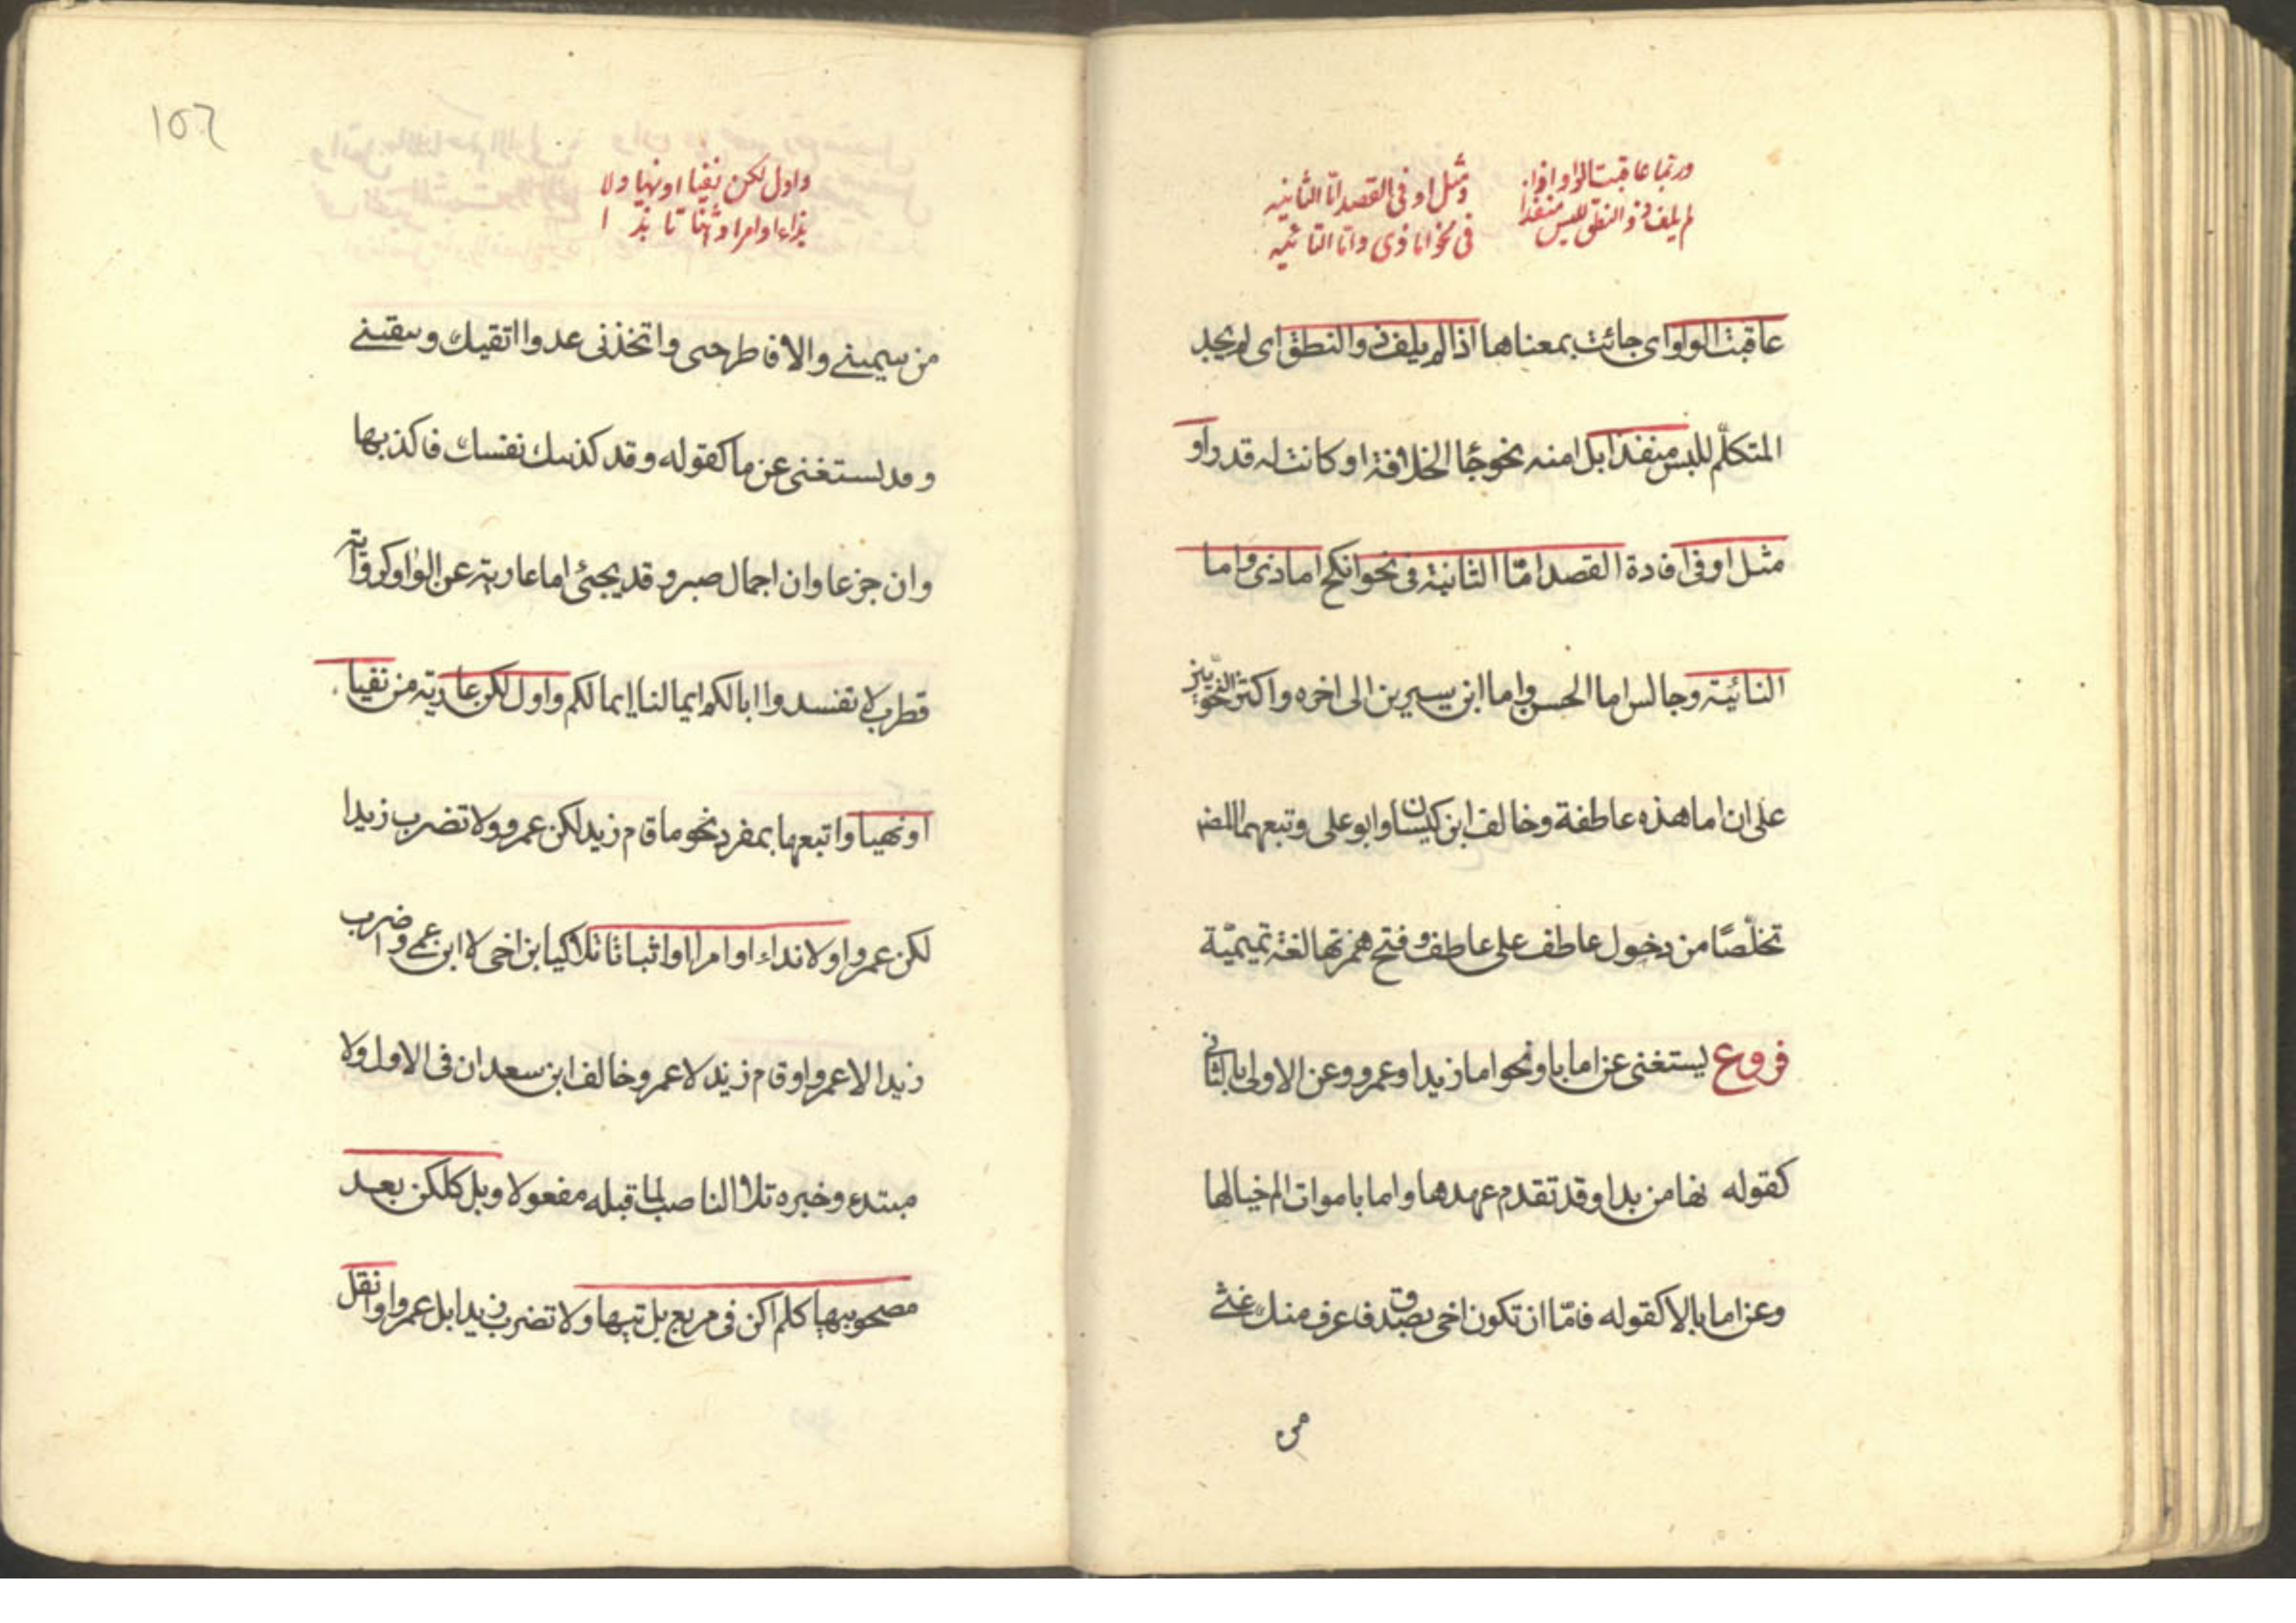 وربما عاقبت الواو اذا
لم يلف ذو النطق للبس منفذا
ومثل او فى القصد اما الثانيه
فى نحو اما ذى واما النائيه
عاقبت الواو اى جائت بمعناها اذا لم يلف ذو النطق اى لم يجد
المتكلّم للبس منفذا بل امنه نحو جٔا الخلافة او كانت له قدرا و
مثل او فى افادة القصد امّا الثانية فى نحو انكح اما ذى واما
النائية وجالس اما الحسن واما ابن سيرين الى اخره واكثر النحويّين
على ان اما هذه عاطفة وخالف ابن كيسان وابو على وتبعهما المصنف
تخلّصًا من دخول عاطف على عاطف وفتح همزتها لغة تميميّة
فروع يستغنى عن اما باو نحو اما زيدا وعمرو وعن الاولى بالثانى
كقوله نهامن بدا وقد تقدم عهدها واما باموات الم خيالها
وعن اما بالا كقوله فامّا ان تكون اخى بصدق فاعرف منك غثى
من
١٥٦
واول لكن نفيا او نهيا ولا
نداء او امرا او اثباتا تلا
من سمينى والا فاطرحنى واتخذنى عدوا اتقيك وتتقينى
وقد يستغنى عن ما كقوله وقد كذبتك نفسك فاكذبها
وان جزعا وان اجمال صبر وقد يجئ اما عارية عن الواو كرواية
قطرب لا تفسدوا ابالكم ايما لنا ايما لكم واول لكن عارية من نفيا
او نهيا واتبعها بمفرد نحو ما قام زيد لكن عمرو ولا تضرب زيدا
لكن عمروا ولا نداء او امرا او اثباتا تلا كيا بن اخى لا ابن عمى واضرب
زيدا لا عمروا وقام زيد لا عمرو وخالف ابن سعدان فى الاول ولا
مبتدء وخبره تلا الناصب لما قبله مفعولا وبل كلكن بعد
مصحوبيها كلم اكن فى مربع بل تيها ولا تضرب زيدا بل عمروا وانقل